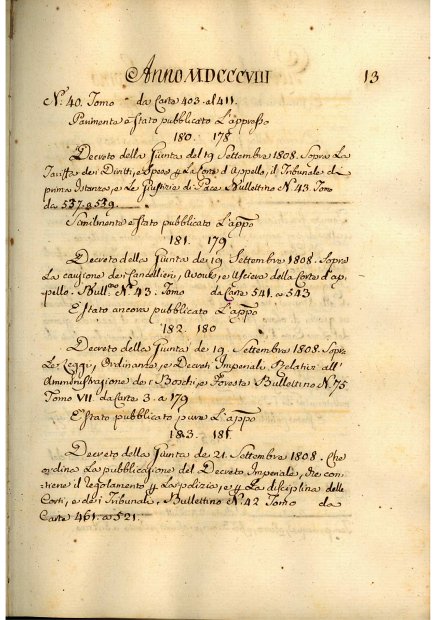 Anno MDCCCVIII 13
N.º 40. Tomo da Carte 403. al 411.
Parimente è stato pubblicato L'appresso
180. 178
Decreto della Giunta del 19 Settembre 1808. Sopra La
Tariffa dei Diritti, e Spese La Corte d'Appello, il Tribunale di
prima Istanza, e Le Giustizie di Pace Bullettino N. 43. Tomo
da 537. a 539.
Similmente è stato pubblicato L'app̅o
181. 179
Decreto della Giunta de 19 Settembre 1808. Sopra
La cauzione dei Cancellieri, Avoue, e Uscieri della Corte d'ap,,
pello. Bull.no N.º 43. Tomo da Carte 541. a 543
È Stato ancora pubblicato L'app̅o
182. 180
Decreto della Giunta de 19. Settembre 1808. Sopra
Le Leggi, Ordinanze, e Decreti Imperiali Relativi all'
Amministrazione dei Boschi, e Foreste Bullettino N. 75
Tomo VII. da Carte 3. a 179
È Stato pubblicato pure L'app̅o
183. 181.
Decreto della Giunta de 21. Settembre 1808. Che
ordina La pubblicazione del Decreto Imperiale, che con,,
tiene il regolamento La polizia, e La disciplina delle
Corti, e dei Tribunali, Bullettino N.º 42 Tomo da
Carte 461. a 521.